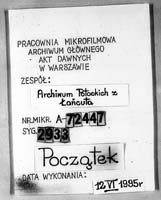 PRACOWNIA MIKROFILMOWA
ARCHIWUM GŁÓWNEGO
AKT DAWNYCH
W WARSZAWIE
ZESPÓŁ:
Archiwum Potockich z
Łańcuta
NR.MIKR. A-72447
SYG. 2933
Początek
DATA WYKONANIA:
12.VI 1985r